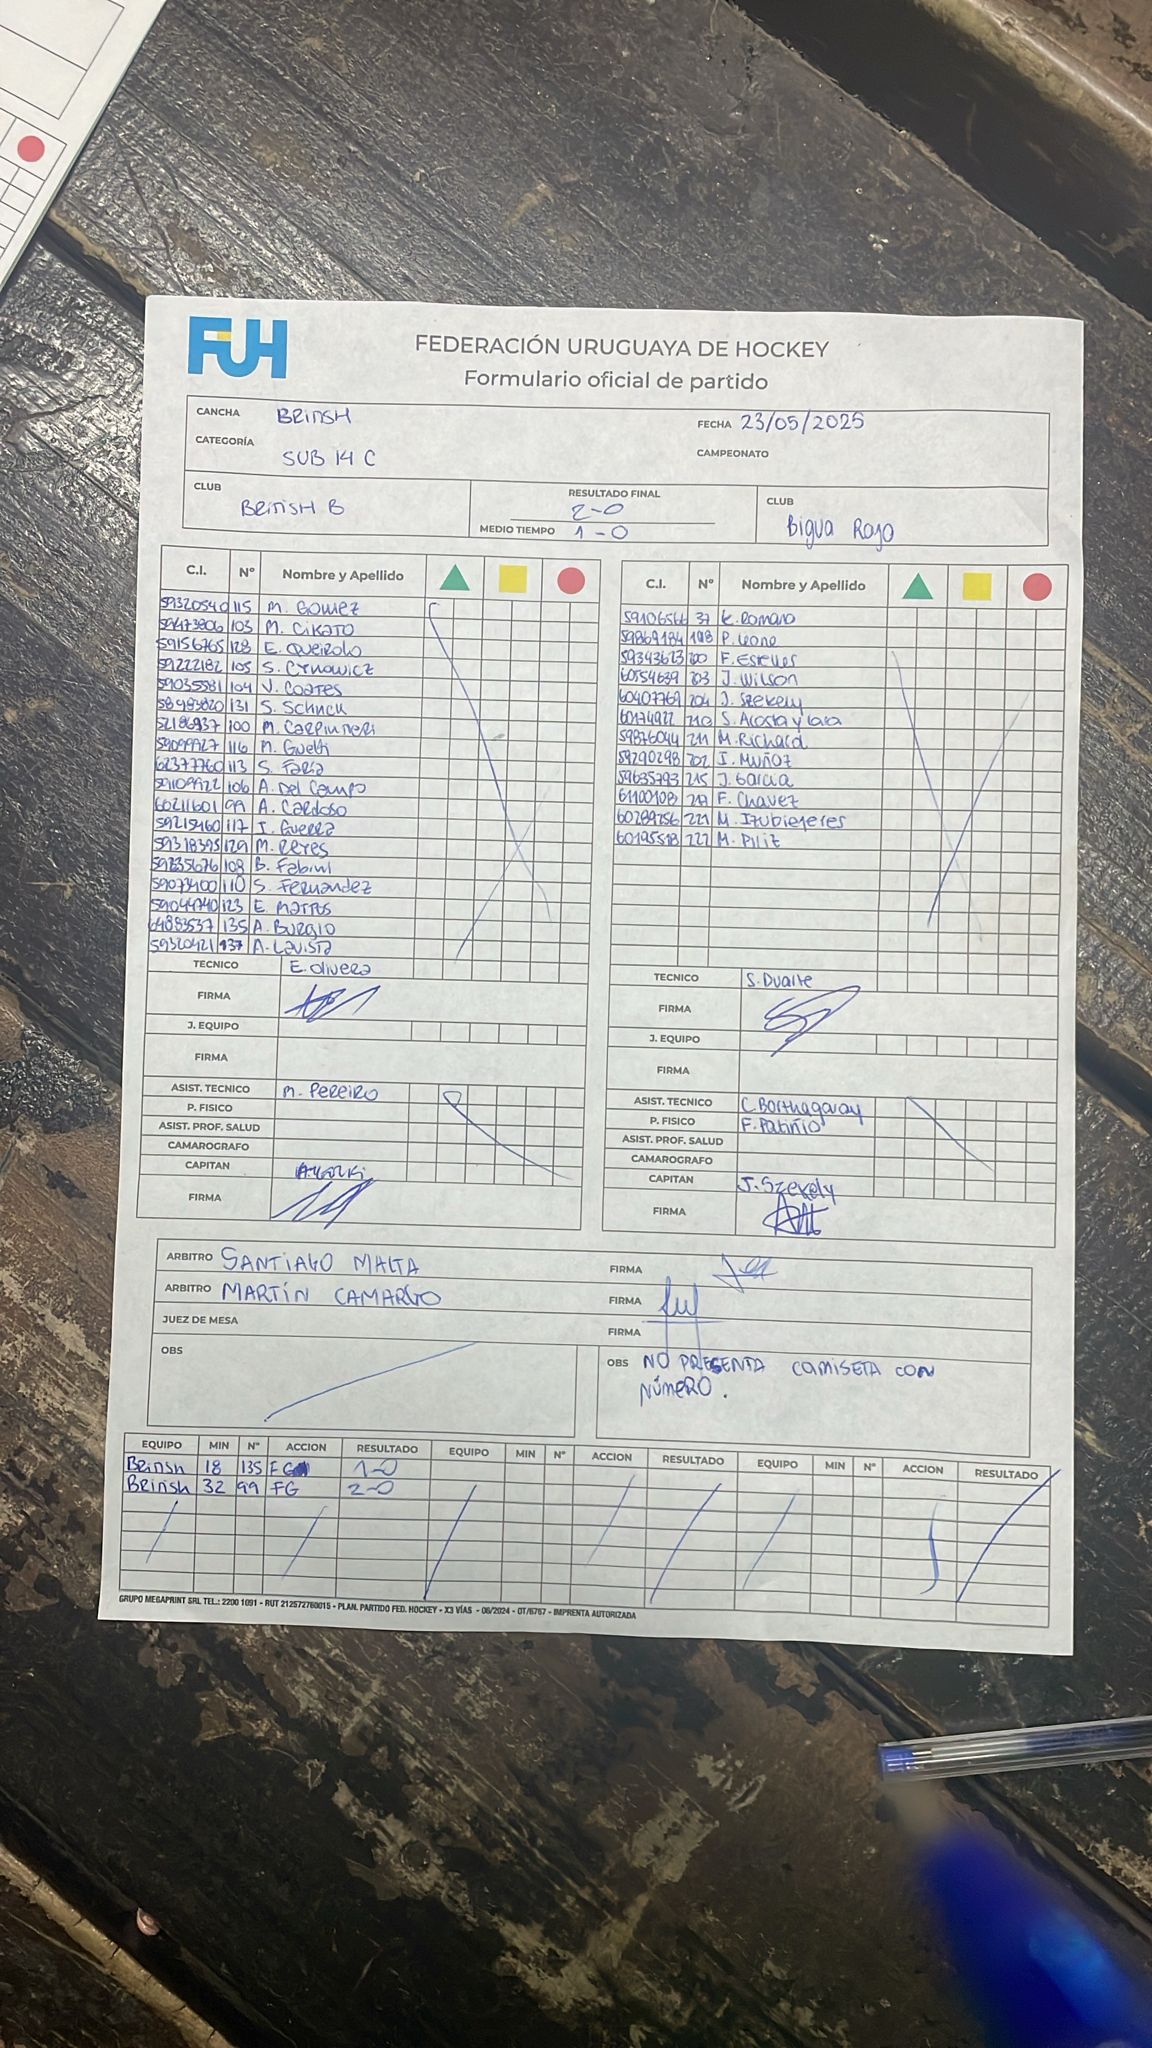 FUH
FEDERACIÓN URUGUAYA DE HOCKEY
Formulario oficial de partido
CANCHA BRITISH FECHA 23/05/2025
CATEGORÍA SUB 14 C CAMPEONATO
CLUB British B RESULTADO FINAL 2-0 CLUB Bigua Rojo
MEDIO TIEMPO 1-0
C.I. Nº Nombre y Apellido
59320540 115 M. Gomez
59473806 103 M. Cikato
59156765 128 E. Queirolo
59222182 105 S. Cynowicz
59035581 104 V. Coates
58493820 131 S. Schnck
52186937 100 M.
59099927 116 M. Guelfi
62377760 113 S. Faria
59109922 106 A. Del Campo
60211601 99 A. Cardoso
59215460 117 I. Guerra
59318395 129 M. Reyes
59235676 108 B. Fabini
59073400 110 S. Fernandez
59044740 123 E. Mattos
64883537 135 A. Burgio
59320421 137 A. Lavista
TECNICO E. Olivera
FIRMA
J. EQUIPO
FIRMA
ASIST. TECNICO M. Pereiro
P. FISICO
ASIST. PROF. SALUD
CAMAROGRAFO
CAPITAN
FIRMA
C.I. Nº Nombre y Apellido
59106566 37 K. Romano
59869184 198 P. Leone
59343623 200 F. Estelles
60754639 203 J. Wilson
60407769 204 J. Szekely
60174922 210 S. Acosta y Lara
59876044 211 M. Richard
59290298 202 I. Muñoz
59635793 215 J. Garcia
61100108 217 F. Chavez
60289256 221 M.
60195518 222 M.
TECNICO S. Duarte
FIRMA
J. EQUIPO
FIRMA
ASIST. TECNICO C. Borthagaray
P. FISICO F. Patiño
ASIST. PROF. SALUD
CAMAROGRAFO
CAPITAN J. Szekely
FIRMA
ARBITRO SANTIAGO MALTA FIRMA
ARBITRO MARTÍN CAMARGO FIRMA
JUEZ DE MESA FIRMA
OBS OBS NO PRESENTA CAMISETA CON
NÚMERO.
EQUIPO MIN Nº ACCION RESULTADO EQUIPO MIN Nº ACCION RESULTADO EQUIPO MIN Nº ACCION RESULTADO
British 18 135 FG 1-0
British 32 99 FG 2-0
GRUPO MEGAPRINT SRL TEL.: 2200 1091 - RUT 212572760015 - PLAN. PARTIDO FED. HOCKEY - X3 VÍAS - 06/2024 - OT/6757 - IMPRENTA AUTORIZADA